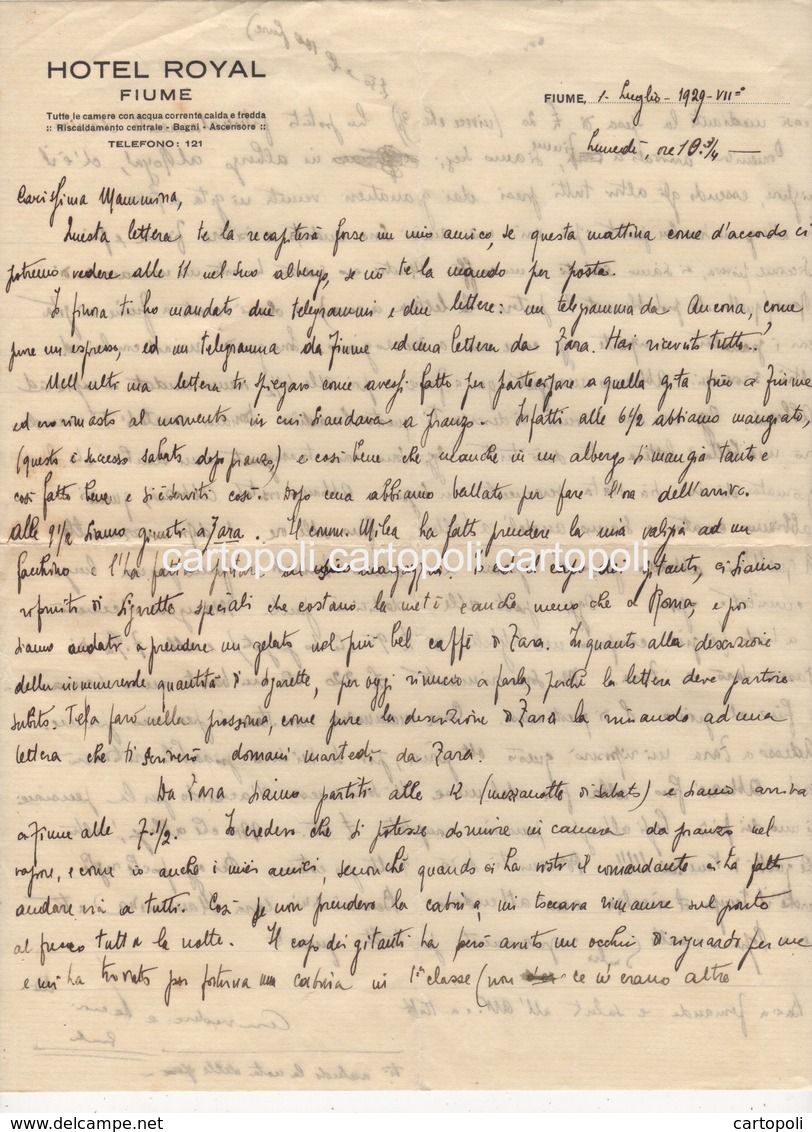 HOTEL ROYAL
FIUME
Tutte le camere con acqua corrente calda e fredda
:: Riscaldamento centrale - Bagni - Ascensore ::
TELEFONO: 121
FIUME, 1 - Luglio - 1929 - VII°
Lunedì, ore 10. 3/4 —
Carissima Mammina,
Questa lettera te la recapiterà forse un mio amico, se questa mattina come d'accordo ci
potremo vedere alle 11 nel suo albergo, se nò te la mando per posta.
Io finora ti ho mandato due telegrammi e due lettere: un telegramma da Ancona, come
pure un espresso, ed un telegramma da Fiume ed una lettera da Zara. Hai ricevuto tutto..?
Nell'ultima lettera ti spiegavo come avessi fatto per partecipare a quella gita fino a Fiume
ed ero rimasto al momento in cui si andava a pranzo. Infatti alle 6 1/2 abbiamo mangiato,
(questo è successo sabato dopo pranzo,) e così bene che neanche in un albergo si mangia tanto e
così fatto bene e si è serviti così. Dopo cena abbiamo ballato per fare l'ora dell'arrivo.
Alle 9 1/2 siamo giunti a Zara. Il comm. Milea ha fatto prendere la mia valigia ad un
facchino e l'ha fatta magazzino. capo dei gitanti, ci siamo
riforniti di sigarette speciali che costano la metà e anche meno che a Roma, e poi
siamo andati a prendere un gelato nel più bel caffè di Zara. In quanto alla descrizione
della quantità di sigarette, per oggi rinuncio a parlar, perché la lettera deve partire
subito. Te la farò nella prossima, come pure la descrizione di Zara la rimando ad una
lettera che ti scriverò domani martedì da Zara.
Da Zara siamo partiti alle 12 (mezzanotte di sabato) e siamo arrivati
a Fiume alle 7.1/2. Io credevo che si potesse dormire in camera da pranzo nel
vapore, e come io anche i miei amici, senonchè quando ci ha visti il comandante ci ha fatti
andare via a tutti. Così se non prendevo la cabina, mi toccava rimanere sul ponto
al fresco tutta la notte. Il capo dei gitanti ha però avuto un occhio di riguardo per me
e mi ha trovato per fortuna una cabina in 1ª classe (non ce n'erano altre
cartopoli cartopoli cartopoli
cartopoli
cartopoli